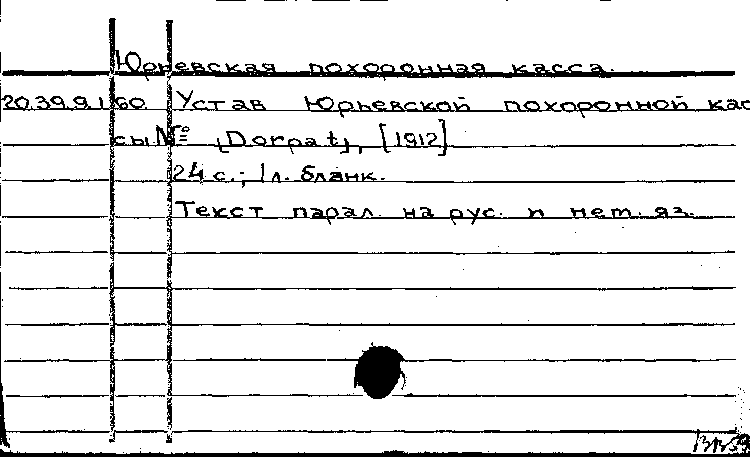 Юрьевская похоронная касса.
20.39.9.160. Устав Юрьевской похоронной кас
сы № (Dorpat), [1912]
24 с.; 1 л. бланк.
Текст парал. на рус. и нем. яз.